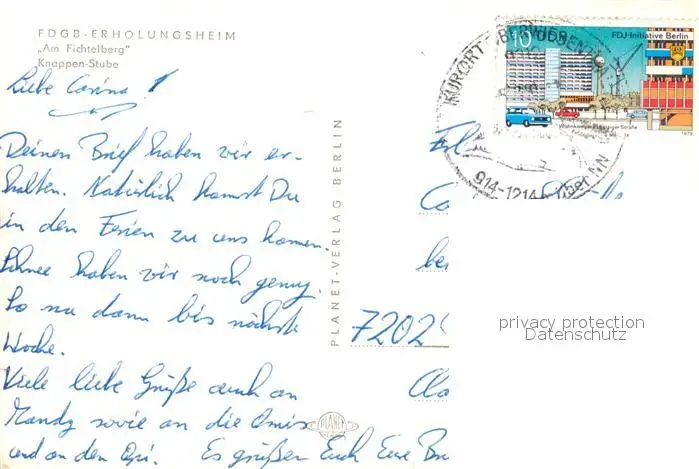 FDGB-ERHOLUNGSHEIM
„Am Fichtelberg"
Knappen-Stube
Liebe Corina!
Deinen Brief haben wir er-
halten. Natürlich kannst Du
in den Ferien zu uns kommen.
Schnee haben wir noch genug.
So na dann bis nächste
Woche.
Viele liebe Grüße auch an
Mandy sowie an die Omis
und an den Opi. Es grüßen Euch Eure
PLANET-VERLAG BERLIN
PLANET
KURORT OBERWIESENTHAL
914-1214 über NN
10 DDR
FDJ-Initiative Berlin
1979
7202
privacy protection
Datenschutz